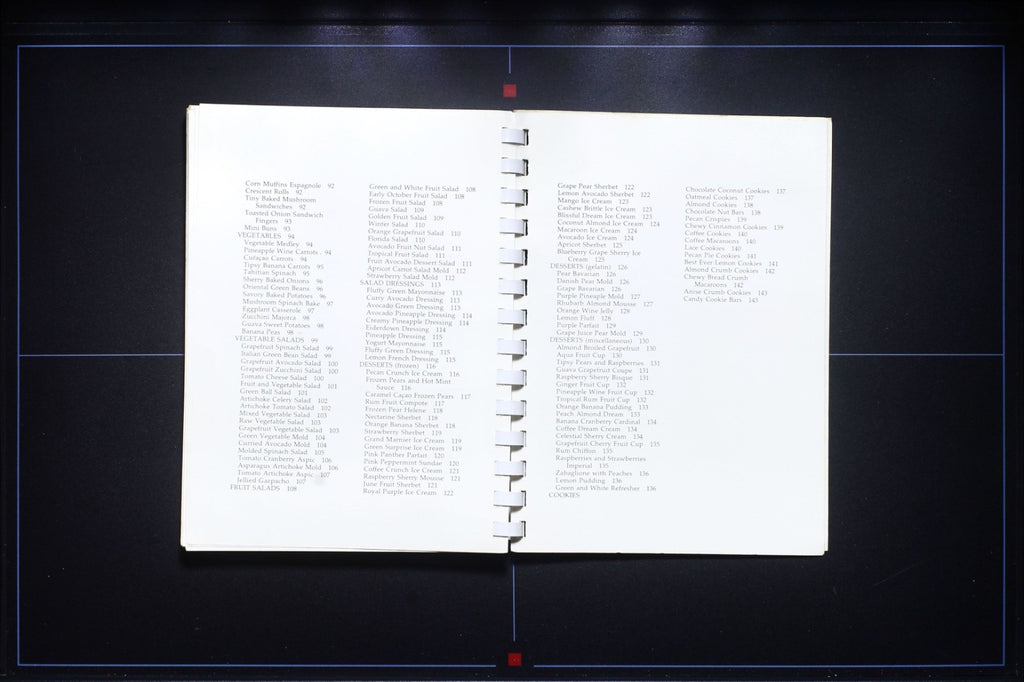 Corn Muffins Espagnole 92
Crescent Rolls 92
Tiny Baked Mushroom
Sandwiches 92
Toasted Onion Sandwich
Fingers 93
Mini Buns 93
VEGETABLES 94
Vegetable Medley 94
Pineapple Wine Carrots 94
Curaçao Carrots 94
Tipsy Banana Carrots 95
Tahitian Spinach 95
Sherry Baked Onions 96
Oriental Green Beans 96
Savory Baked Potatoes 96
Mushroom Spinach Bake 97
Eggplant Casserole 97
Zucchini Majorca 98
Guava Sweet Potatoes 98
Banana Peas 98
VEGETABLE SALADS 99
Grapefruit Spinach Salad 99
Italian Green Bean Salad 99
Grapefruit Avocado Salad 100
Grapefruit Zucchini Salad 100
Tomato Cheese Salad 100
Fruit and Vegetable Salad 101
Green Ball Salad 101
Artichoke Celery Salad 102
Artichoke Tomato Salad 102
Mixed Vegetable Salad 103
Raw Vegetable Salad 103
Grapefruit Vegetable Salad 103
Green Vegetable Mold 104
Curried Avocado Mold 104
Molded Spinach Salad 105
Tomato Cranberry Aspic 106
Asparagus Artichoke Mold 106
Tomato Artichoke Aspic 107
Jellied Gazpacho 107
FRUIT SALADS 108
Green and White Fruit Salad 108
Early October Fruit Salad 108
Frozen Fruit Salad 108
Guava Salad 109
Golden Fruit Salad 109
Winter Salad 110
Orange Grapefruit Salad 110
Florida Salad 110
Avocado Fruit Nut Salad 111
Tropical Fruit Salad 111
Fruit Avocado Dessert Salad 111
Apricot Carrot Salad Mold 112
Strawberry Salad Mold 112
SALAD DRESSINGS 113
Fluffy Green Mayonnaise 113
Curry Avocado Dressing 113
Avocado Green Dressing 113
Avocado Pineapple Dressing 114
Creamy Pineapple Dressing 114
Eiderdown Dressing 114
Pineapple Dressing 115
Yogurt Mayonnaise 115
Fluffy Green Dressing 115
Lemon French Dressing 115
DESSERTS (frozen) 116
Pecan Crunch Ice Cream 116
Frozen Pears and Hot Mint
Sauce 116
Caramel Caçao Frozen Pears 117
Rum Fruit Compote 117
Frozen Pear Helene 118
Nectarine Sherbet 118
Orange Banana Sherbet 118
Strawberry Sherbet 119
Grand Marnier Ice Cream 119
Green Surprise Ice Cream 119
Pink Panther Parfait 120
Pink Peppermint Sundae 120
Coffee Crunch Ice Cream 121
Raspberry Sherry Mousse 121
June Fruit Sherbet 121
Royal Purple Ice Cream 122
Grape Pear Sherbet 122
Lemon Avocado Sherbet 122
Mango Ice Cream 123
Cashew Brittle Ice Cream 123
Blissful Dream Ice Cream 123
Coconut Almond Ice Cream 124
Macaroon Ice Cream 124
Avocado Ice Cream 124
Apricot Sherbet 125
Blueberry Grape Sherry Ice
Cream 125
DESSERTS (gelatin) 126
Pear Bavarian 126
Danish Pear Mold 126
Grape Bavarian 126
Purple Pineaple Mold 127
Rhubarb Almond Mousse 127
Orange Wine Jelly 128
Lemon Fluff 128
Purple Parfait 129
Grape Juice Pear Mold 129
DESSERTS (miscellaneous) 130
Almond Broiled Grapefruit 130
Aqua Fruit Cup 130
Tipsy Pears and Raspberries 131
Guava Grapefruit Coupe 131
Raspberry Sherry Bisque 131
Ginger Fruit Cup 132
Pineapple Wine Fruit Cup 132
Tropical Rum Fruit Cup 132
Orange Banana Pudding 133
Peach Almond Dream 133
Banana Cranberry Cardinal 134
Coffee Dream Cream 134
Celestial Sherry Cream 134
Grapefruit Cherry Fruit Cup 135
Rum Chiffon 135
Raspberries and Strawberries
Imperial 135
Zabaglione with Peaches 136
Lemon Pudding 136
Green and White Refresher 136
COOKIES
Chocolate Coconut Cookies 137
Oatmeal Cookies 137
Almond Cookies 138
Chocolate Nut Bars 138
Pecan Crispies 139
Chewy Cinnamon Cookies 139
Coffee Cookies 140
Coffee Macaroons 140
Lace Cookies 140
Pecan Pie Cookies 141
Best Ever Lemon Cookies 141
Almond Crumb Cookies 142
Chewy Bread Crumb
Macaroons 142
Anise Crumb Cookies 143
Candy Cookie Bars 143